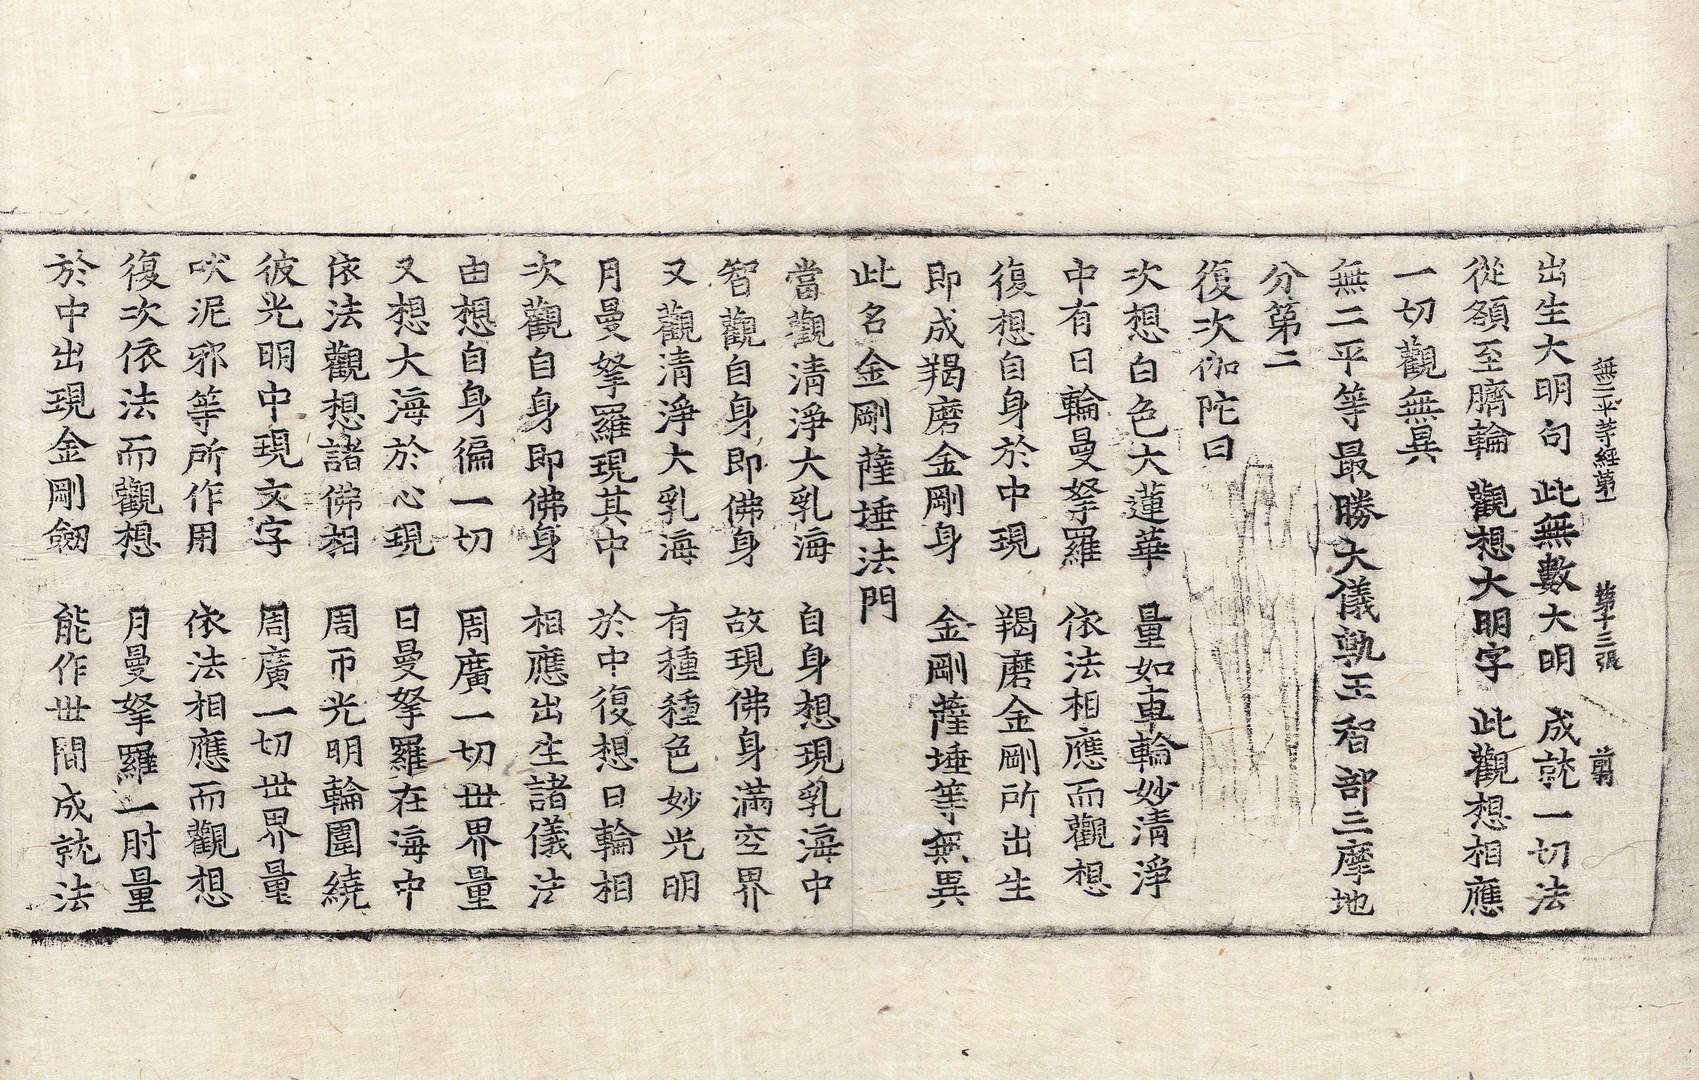 無二平等經第一 第十三張 前
出生大明句 此無數大明 成就一切法
從額至臍輪 觀想大明字 此觀想相應
一切觀無異
無二平等最勝大儀軌王智部三摩地
分第二
復次伽陀曰
次想白色大蓮華 量如車輪妙清淨
中有日輪曼拏羅 依法相應而觀想
復想自身於中現 羯磨金剛所出生
即成羯磨金剛身 金剛薩埵等無異
此名金剛薩埵法門
當觀清淨大乳海 自身想現乳海中
智觀自身即佛身 故現佛身滿空界
又觀清淨大乳海 有種種色妙光明
月曼拏羅現其中 於中復想日輪相
次觀自身即佛身 相應出生諸儀法
由想自身徧一切 周廣一切世界量
又想大海於心現 日曼拏羅在海中
依法觀想諸佛相 周帀光明輪圍繞
彼光明中現文字 周廣一切世界量
吠泥邪等所作用 依法相應而觀想
復次依法而觀想 月曼拏羅一肘量
於中出現金剛劔 能作世間成就法